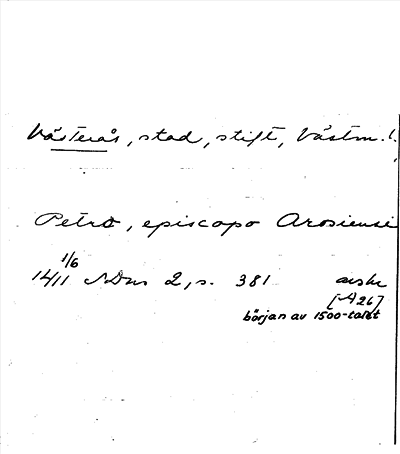 Västerås, stad, stift, Västm. l.
Petro, episcopo Arosiensi
1/6
14/11 NDns 2, s. 381 avskr
[A26]
början av 1500-talet